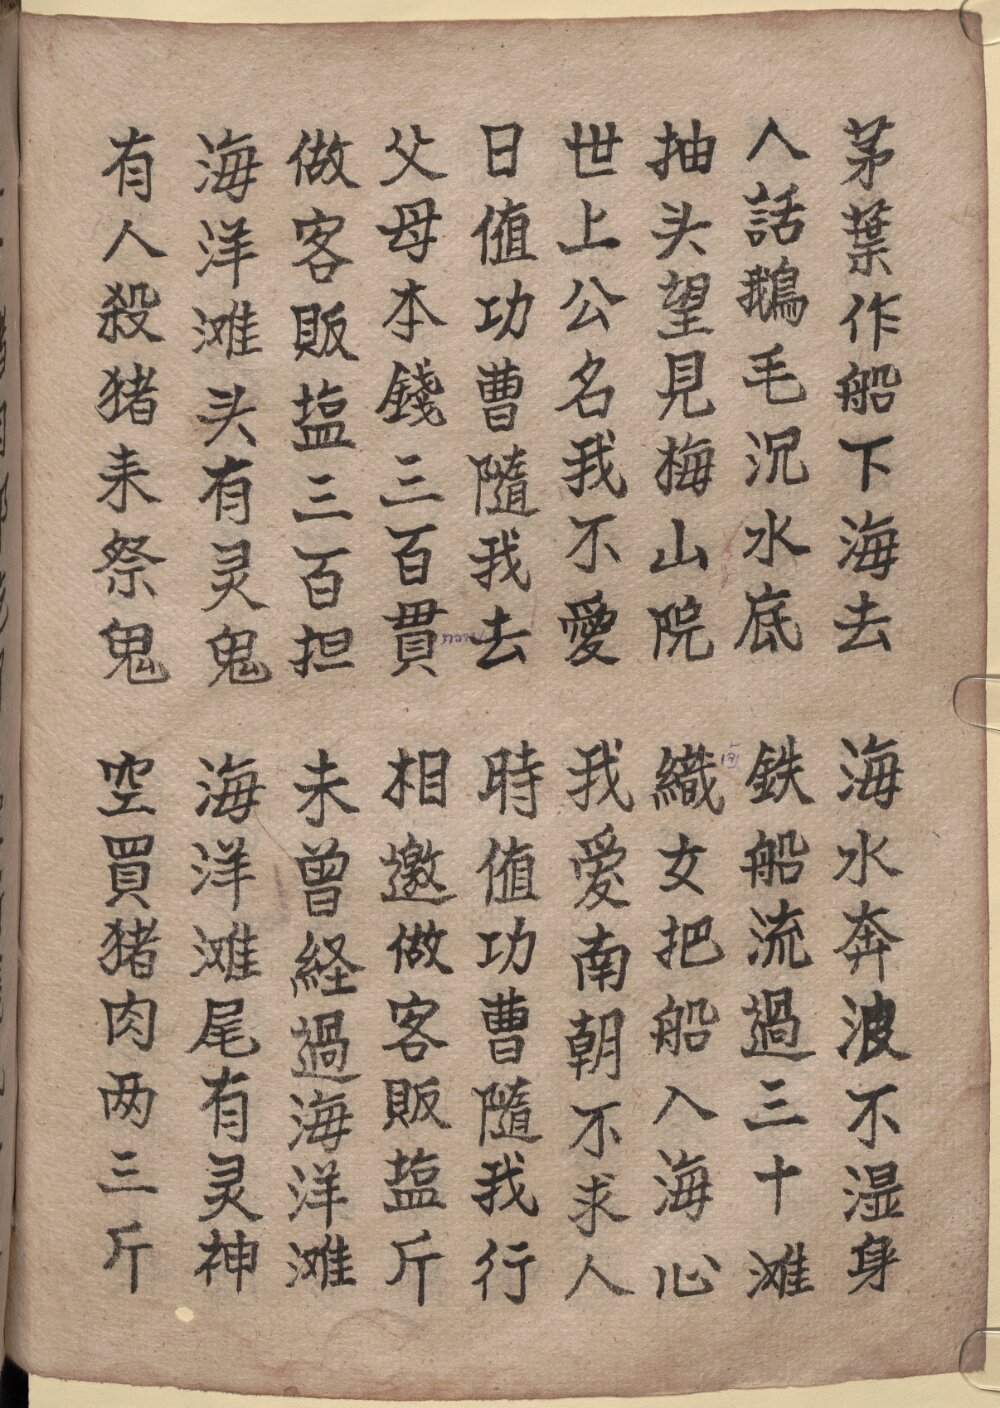 茅葉作船下海去 海水奔波不湿身
人話鵝毛沉水底 鉄船流過三十滩
抽头望見梅山院 織女把船入海心
世上公名我不愛 我愛南朝不求人
日值功曹隨我去 時值功曹隨我行
父母本錢三百貫 相邀做客販塩斤
做客販塩三百担 未曾経過海洋滩
海洋滩头有灵鬼 海洋滩尾有灵神
有人殺猪耒祭鬼 空買猪肉两三斤